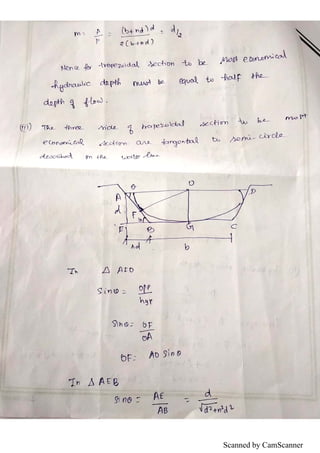 m = A/P = (b+nd)d / 2(b+nd) = d/2
Hence for tropezoidal section to be Most economical
hydraulic depth must be equal to half the
depth of flow.
(iii) The three side of tropezoidal section to be most
economical section are tangential to semi-circle
described on the water line
A θ O D
d F
E B G C
nd b
In Δ AEO
Sinθ = opp/hyp
Sinθ = OF/OA
OF = AO Sinθ
In Δ AEB
Sinθ = AE/AB = d/√d²+n²d²
Scanned by CamScanner